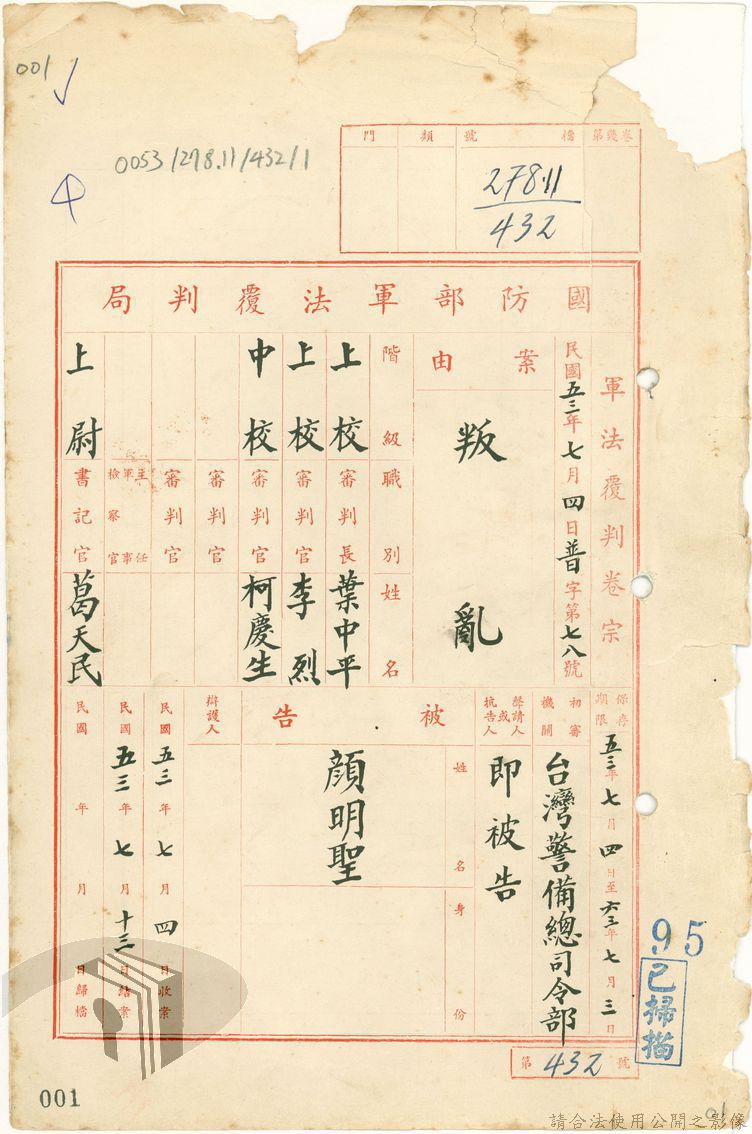 001
0053/278.11/432/1
卷幾第
檔號
類
門
278.11
432
國防部軍法覆判局
軍法覆判卷宗
民國五三年七月四日普字第七八號
案由
叛亂
階級
職別
姓名
上校
審判長
葉中平
上校
審判官
李烈
中校
審判官
柯慶生
審判官
審判官
主任
軍事
檢察官
上尉
書記官
葛天民
保存期限
五三年七月四日至六三年七月三日
初審機關
台灣警備總司令部
聲請人或抗告人
即被告
被告
姓名
顏明聖
身份
辯護人
民國五三年七月四日收案
民國五三年七月十三日結案
民國年月日歸檔
第432號
95
已掃描
001
01
請合法使用公開之影像